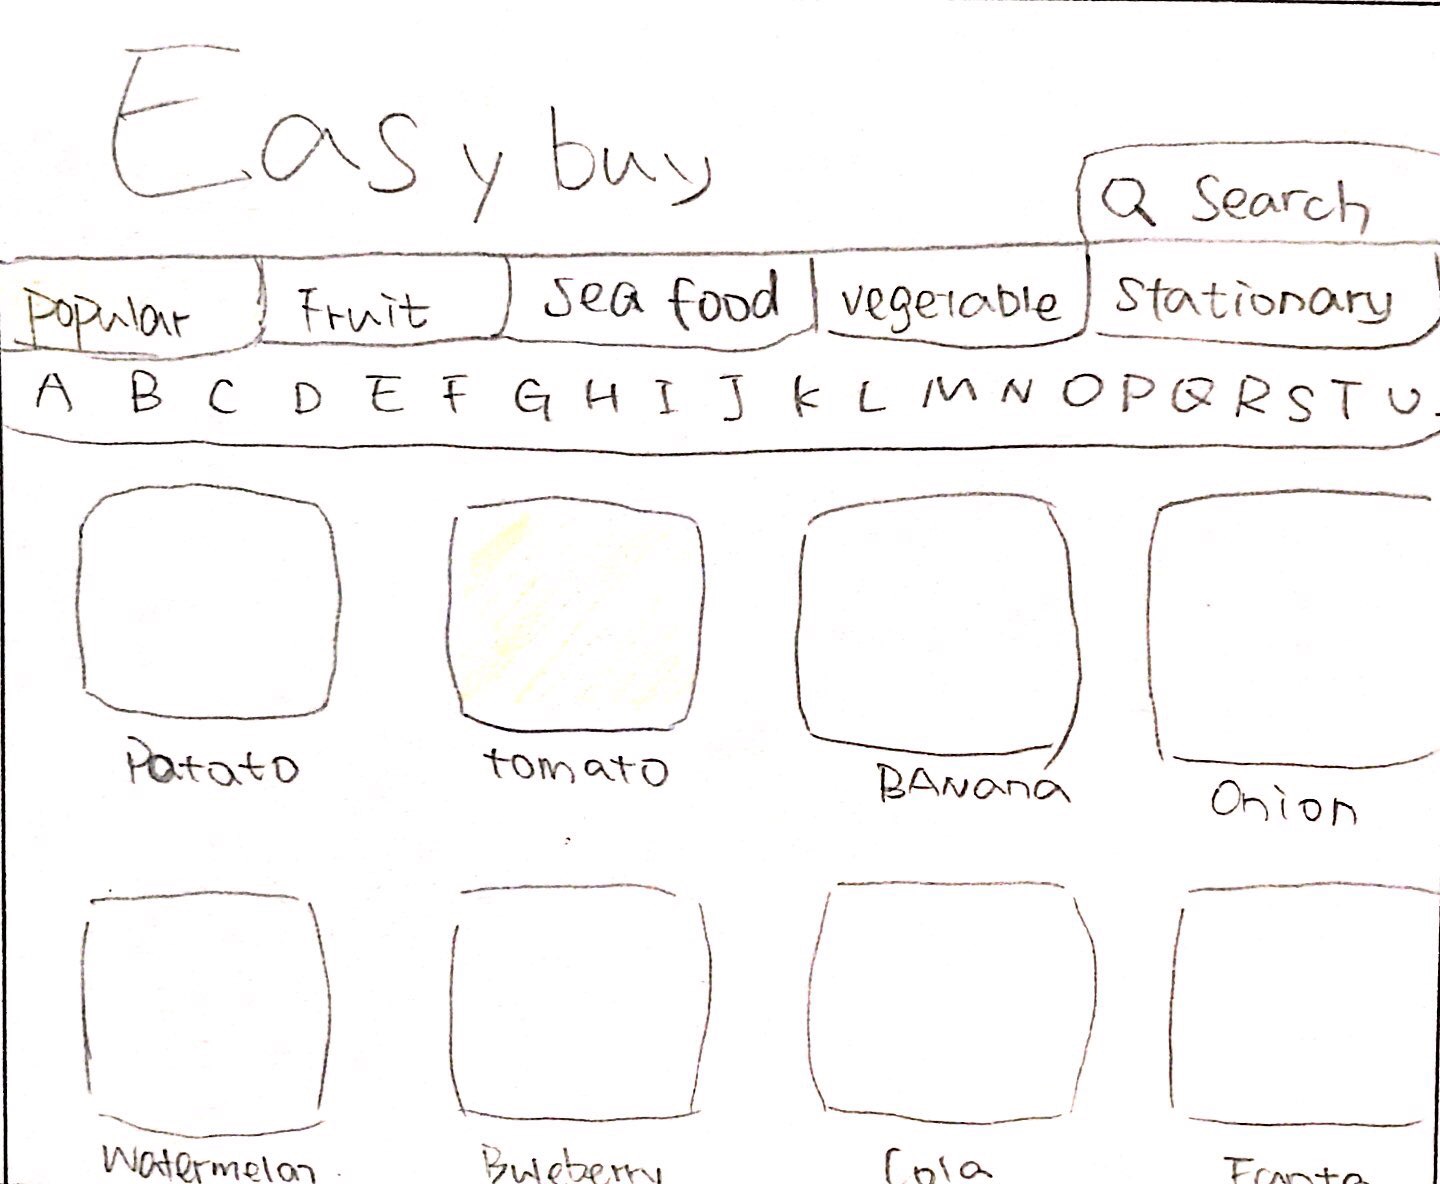 Easy buy
Q Search
Popular Fruit Sea food vegetable Stationary
A B C D E F G H I J K L M N O P Q R S T U
Patato tomato BANana Onion
Watermelon Buleberry Cola Franta